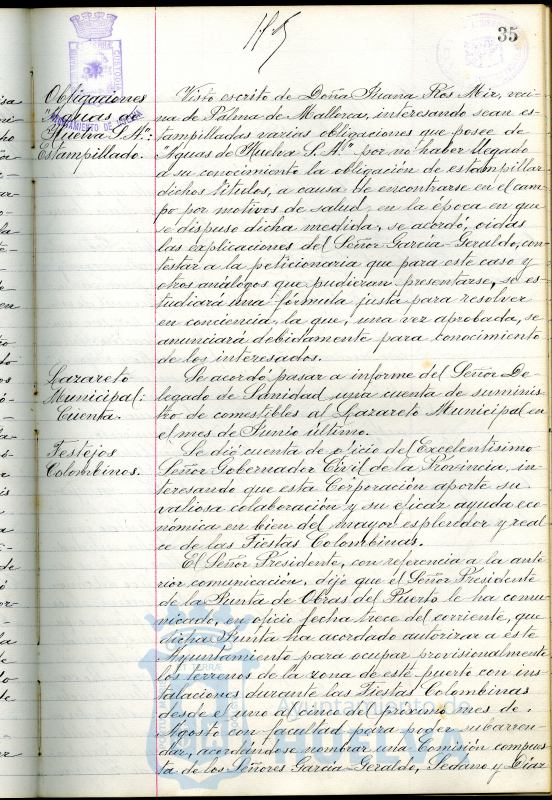 35
Obligaciones
"Aguas de
Huelva S.A.":
Estampillado.
Visto escrito de Doña Juana Ros Mir, veci-
na de Palma de Mallorca, interesando sean es-
tampilladas varias obligaciones que posee de
"Aguas de Huelva S. A." por no haber llegado
a su conocimiento la obligación de estampillar
dichos títulos, a causa de encontrarse en el cam-
po por motivos de salud, en la época en que
se dispuso dicha medida, se acordó, oidas
las explicaciones del Señor García-Geraldo, con-
testar a la peticionaria que para este caso y
otros análogos que pudieran presentarse, se es-
tudiará una fórmula justa para resolver
en conciencia, la que, una vez aprobada, se
anunciará debidamente para conocimiento
de los interesados.
Lazareto
Municipal:
Cuenta.
Se acordó pasar a informe del Señor De-
legado de Sanidad una cuenta de suminis-
tro de comestibles al Lazareto Municipal en
el mes de Junio último.
Festejos
Colombinos.
Se dió cuenta de oficio del Excelentísimo
Señor Gobernador Civil de la Provincia, in-
teresando que esta Corporación aporte su
valiosa colaboración y su eficaz ayuda eco-
nómica en bien del mayor esplendor y real-
ce de las Fiestas Colombinas.
El Señor Presidente, con referencia a la ante-
rior comunicación, dijo que el Señor Presidente
de la Junta de Obras del Puerto le ha comu-
nicado, en oficio fecha trece del corriente, que
dicha Junta ha acordado autorizar a este
Ayuntamiento para ocupar provisionalmente
los terrenos de la zona de este puerto con ins-
talaciones durante las Fiestas Colombinas
desde el uno al cinco del próximo mes de
Agosto con facultad para poder subarren-
dar, acordándose nombrar una Comisión compues-
ta de los Señores García-Geraldo, Sedano y Díaz
Ayuntamiento de
HUELVA